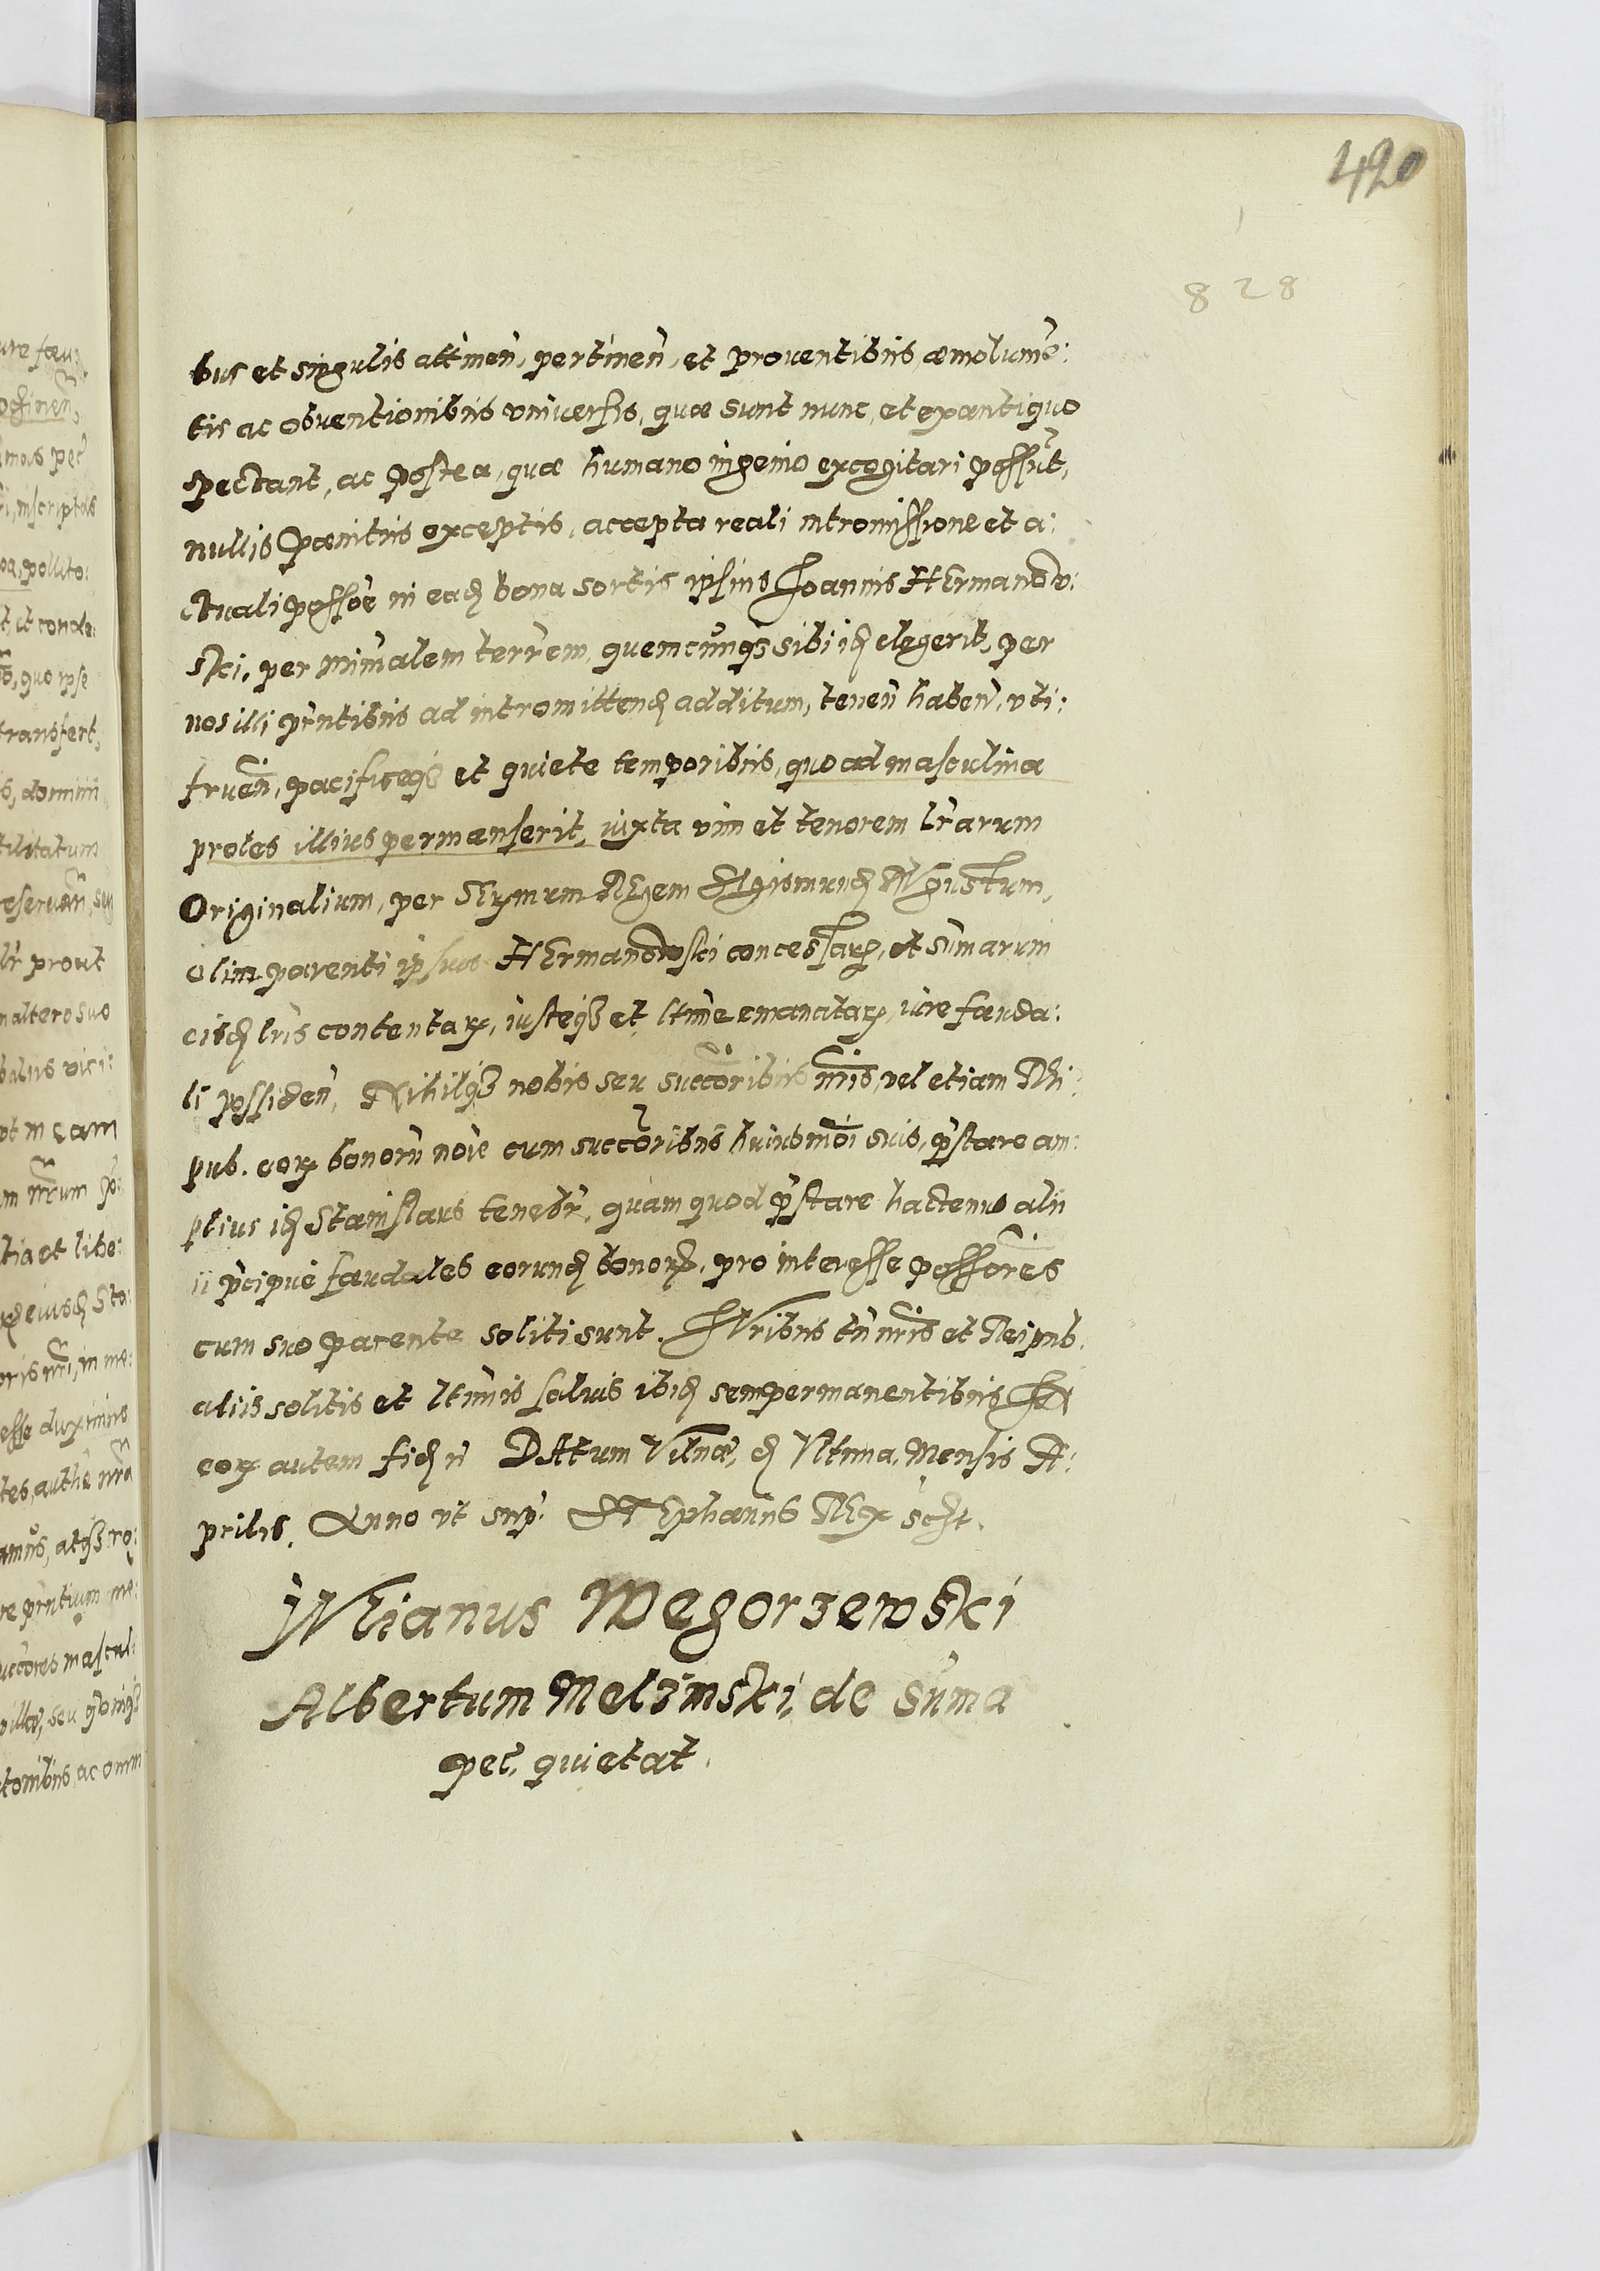 420
828
bus et singulis attinen̄, pertinen̄, et prouentibus, æmolumē:
tis ac obuentionibus vniuersis, quæ sunt nunc, et ex antiquo
spectant, ac postea, quæ humano ingenio excogitari possūt,
nullis pænitus exceptis, accepta reali intromissione et a:
ctuali possōe in eadꝫ bona sortis ipsius Joannis HErmandow:
ski, per minīalem terrēm, quemcūnqꝫ sibi idꝫ elegerit, per
nos illi pr̄ntibus ad intromittendꝫ additum, tenen̄ haben̄, vti:
fruen̄, pacificeqꝫ et quiete temporibus, quoad masculina
proles illius permanserit, iuxta vim et tenorem lr̄arum
Originalium, per Sermum REgem SIgismundꝫ AVgustum,
olim parenti ipsius HErmandowski concessarꝝ, et sūmarum
eisdꝫ lr̄is contentarꝝ, iusteqꝫ et ltīme emanatarꝝ, iure fæuda:
li possiden̄, Nihilqꝫ nobis seu succōribus nr̄is, vel etiam Rei:
pub. eorꝝ bonorū noīe cum succōribus huiusmōi suis, p̄stare am:
plius idꝫ Stanislaus tenebr̄, quam quod p̄stare hactenus alii
ii p̄cipuè fæudales eorundꝫ bonorꝝ, pro interesse possōres
cum suo parente soliti sunt. IVribus tn̄ nr̄is et Reipub.
aliis solitis et ltīmis saluis ibidꝫ semper manentibus In
eorꝝ autem fidꝫ ꝛc̄ DAtum Vilnæ, dꝫ Vltima, Mensis A:
prilis. Anno vt sup̄. STEphanus REx sc̄pt.
IVlianus Wegorzewski
Albertum Melzinski, de sūma
pec̄. quietat.